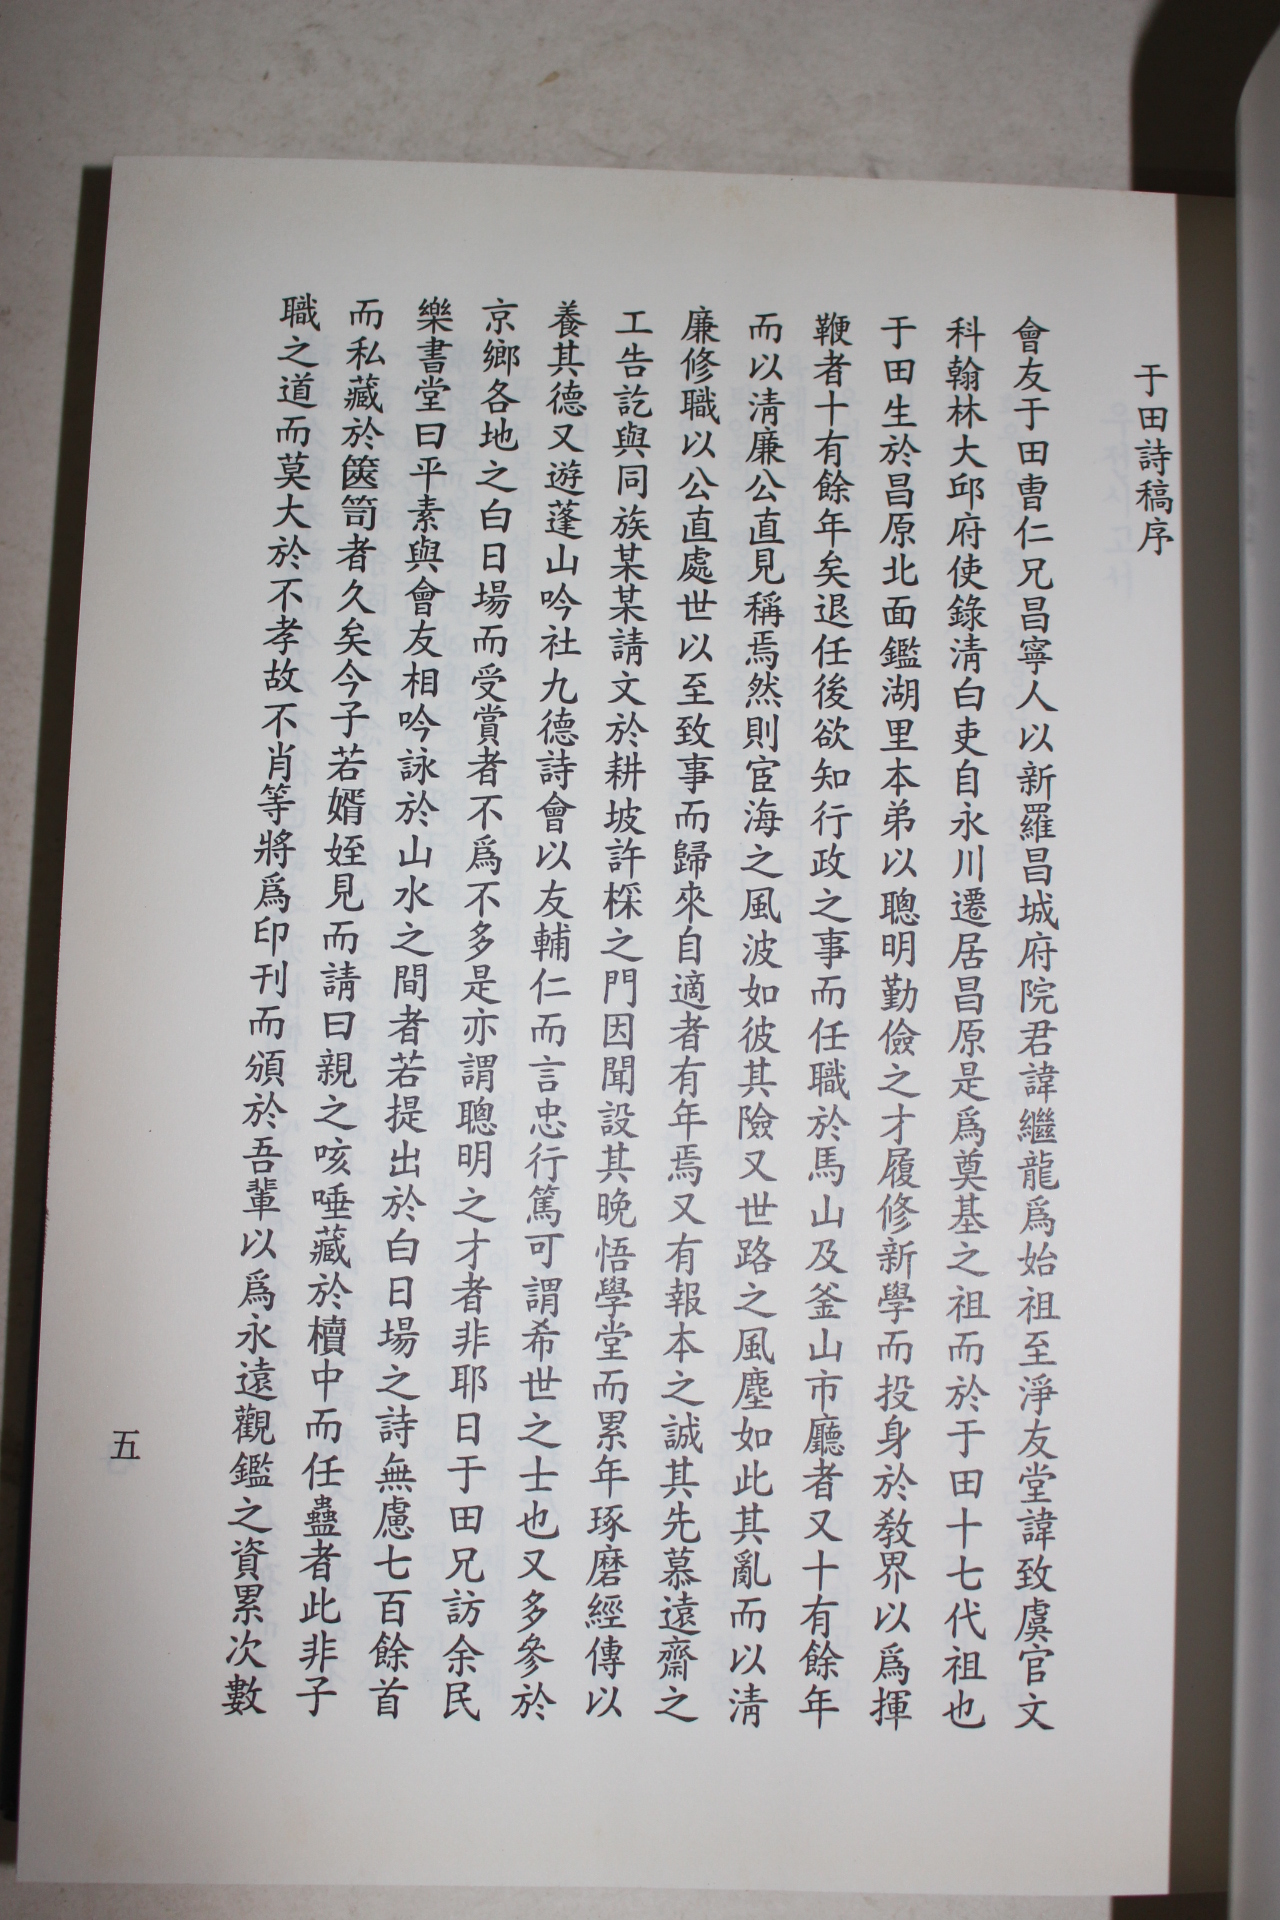 于田詩稿序
會友于田曺仁兄昌寧人以新羅昌城府院君諱繼龍爲始祖至淨友堂諱致虞官文
科翰林大邱府使錄淸白吏自永川遷居昌原是爲奠基之祖而於于田十七代祖也
于田生於昌原北面鑑湖里本弟以聰明勤儉之才履修新學而投身於敎界以爲揮
鞭者十有餘年矣退任後欲知行政之事而任職於馬山及釜山市廳者又十有餘年
而以淸廉公直見稱焉然則宦海之風波如彼其險又世路之風塵如此其亂而以淸
廉修職以公直處世以至致事而歸來自適者有年焉又有報本之誠其先慕遠齋之
工告訖與同族某某請文於耕坡許棌之門因聞設其晩悟學堂而累年琢磨經傳以
養其德又遊蓬山吟社九德詩會以友輔仁而言忠行篤可謂希世之士也又多參於
京鄉各地之白日場而受賞者不爲不多是亦謂聰明之才者非耶日于田兄訪余民
樂書堂曰平素與會友相吟詠於山水之間者若提出於白日場之詩無慮七百餘首
而私藏於篋笥者久矣今子若婿姪見而請曰親之咳唾藏於櫝中而任蠱者此非子
職之道而莫大於不孝故不肖等將爲印刊而頒於吾輩以爲永遠觀鑑之資累次數
五